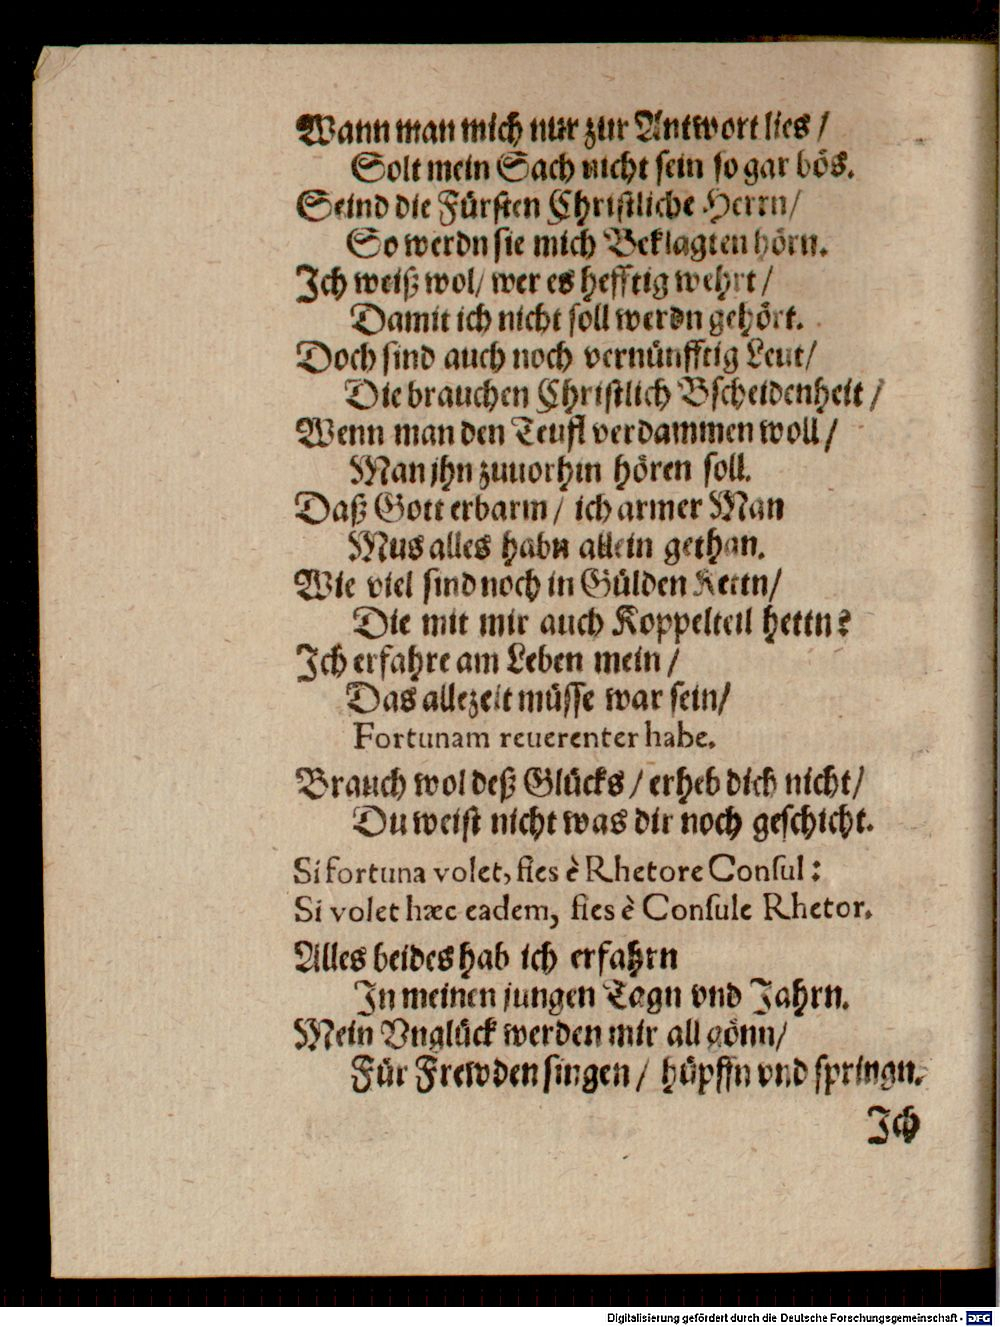 Wann man mich nur zur Antwort lies /
Solt mein Sach nicht sein so gar bös.
Seind die Fürsten Christliche Herrn/
So werdn sie mich Beklagten hörn.
Ich weiß wol/ wer es hefftig wehrt /
Damit ich nicht soll werdn gehört.
Doch sind auch noch vernünfftig Leut/
Die brauchen Christlich Bscheidenheit /
Wenn man den Teufl verdammen woll /
Man jhn zuuorhin hören soll.
Daß Gott erbarm / ich armer Man
Mus alles habn allein gethan.
Wie viel sind noch in Gülden Kettn/
Die mit mir auch Koppelteil hettn?
Ich erfahre am Leben mein /
Das allezeit müsse war sein/
Fortunam reuerenter habe.
Brauch wol deß Glücks / erheb dich nicht/
Du weist nicht was dir noch geschicht.
Si fortuna volet, fies è Rhetore Conſul :
Si volet hæc eadem, fies è Conſule Rhetor.
Alles beides hab ich erfahrn
In meinen jungen Tagn vnd Jahrn.
Mein Vnglück werden mir all gönn/
Für Frewden singen / hüpffn vnd springn.
Ich
Digitalisierung gefördert durch die Deutsche Forschungsgemeinschaft - DFG